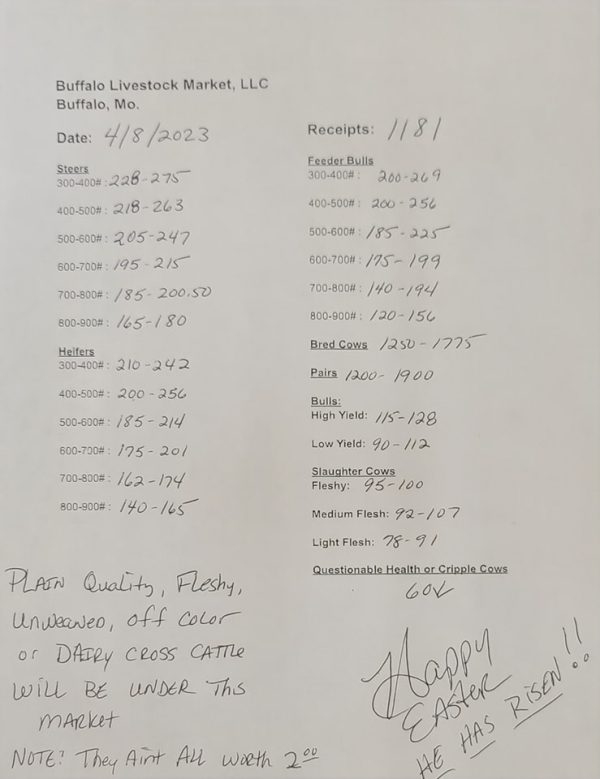 Buffalo Livestock Market, LLC
Buffalo, Mo.
Date: 4/8/2023
Steers
300-400#: 228-275
400-500#: 218-263
500-600#: 205-247
600-700#: 195-215
700-800#: 185-200.50
800-900#: 165-180
Heifers
300-400#: 210-242
400-500#: 200-256
500-600#: 185-214
600-700#: 175-201
700-800#: 162-174
800-900#: 140-165
Receipts: 1181
Feeder Bulls
300-400#: 200-269
400-500#: 200-256
500-600#: 185-225
600-700#: 175-199
700-800#: 140-194
800-900#: 120-156
Bred Cows 1250-1775
Pairs 1200-1900
Bulls:
High Yield: 115-128
Low Yield: 90-112
Slaughter Cows
Fleshy: 95-100
Medium Flesh: 92-107
Light Flesh: 78-91
Questionable Health or Cripple Cows
60↓
PLAIN Quality, Fleshy,
Unweaned, off Color
or DAIRY CROSS CATTLE
WILL BE UNDER THIS
MARKET
NOTE: They Aint ALL Worth 2.00
Happy
EASTER
HE HAS RISEN!!